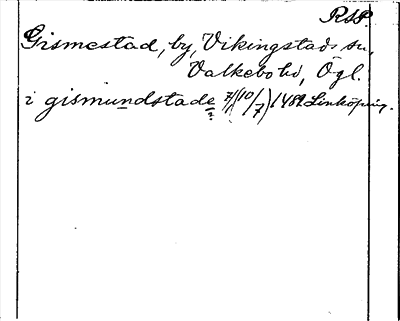 RSP.
Gismestad, by, Vikingstads sn,
Valkebo hd, Ögl.
i gismundstade 7/(10/7) 1481 Linköping.